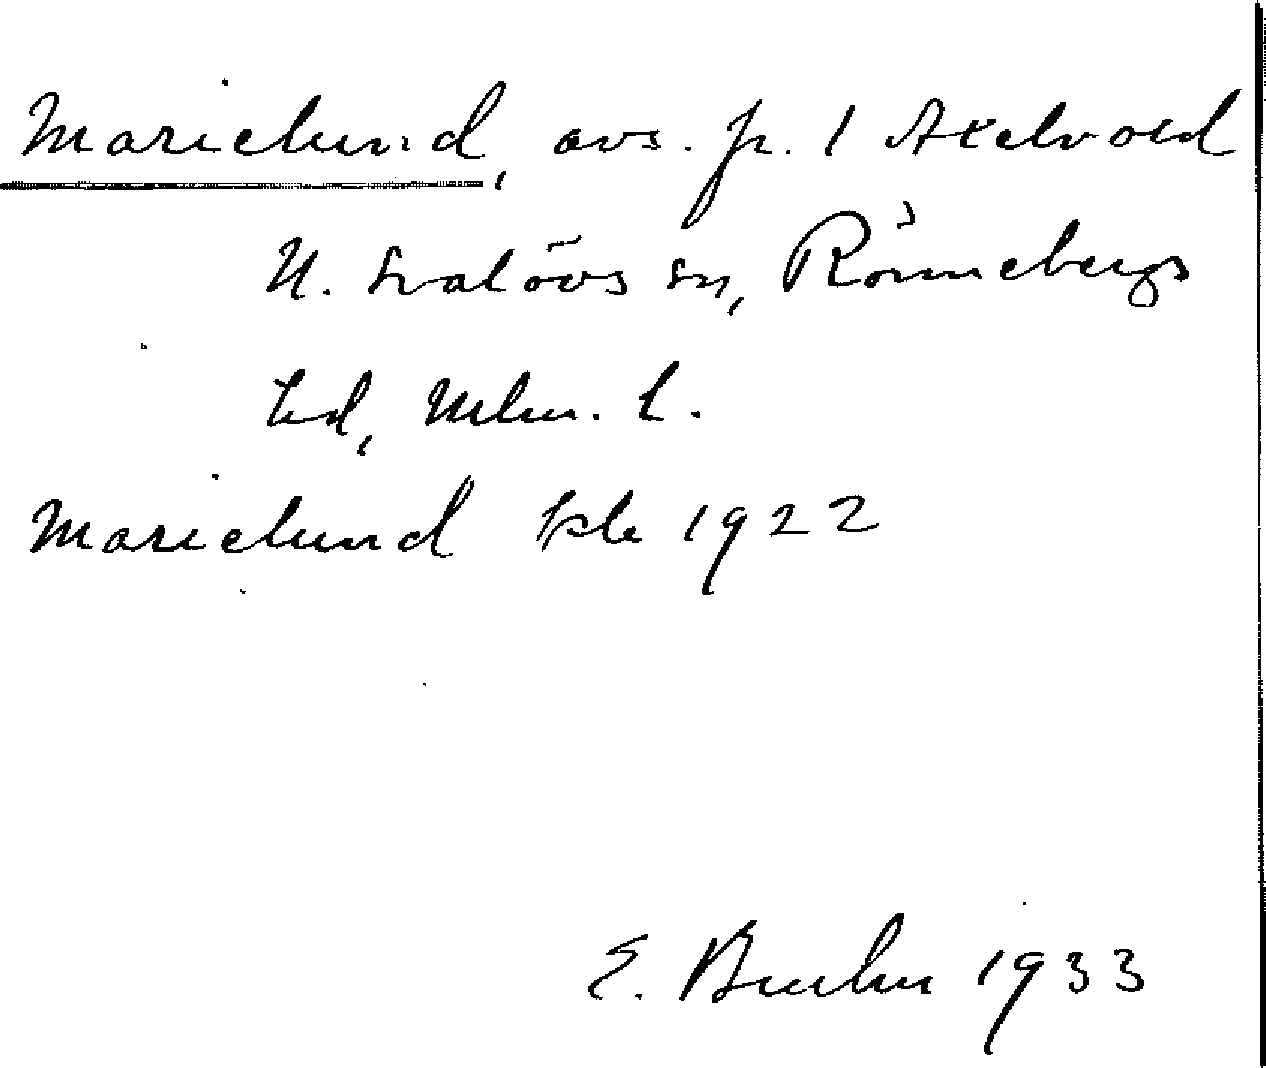 Marielund, avs. fr. 1 Axelvold
N. Svalövs sn, Rönnebergs
hd, Mlm. l.
Marielund hsk 1922
E. 1933